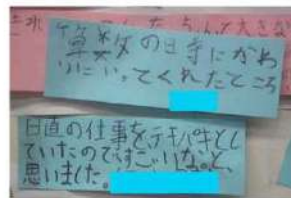 算数の日寺にがわ
りにいってくれたところ
日直の仕事をテキパキとし
ていたのですごいなと、
思いました。